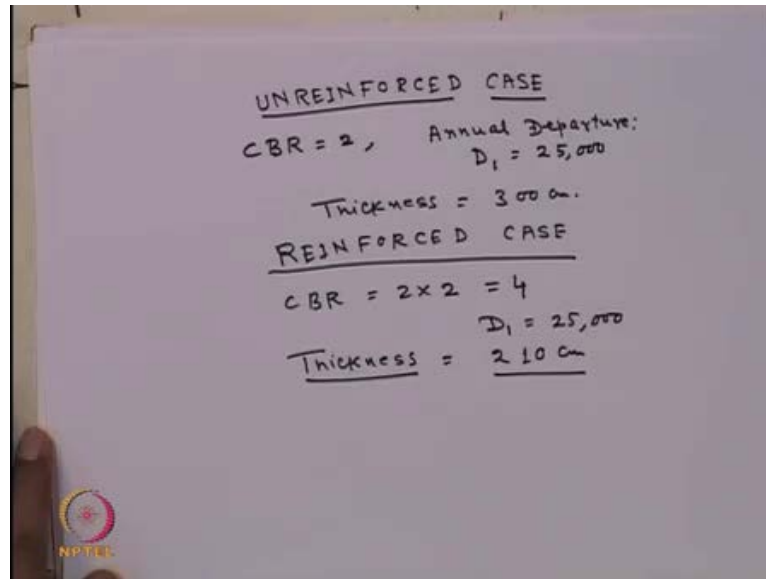 UNREINFORCED CASE
CBR = 2, Annual Departure:
D₁ = 25,000
Thickness = 300 cm.
REINFORCED CASE
CBR = 2×2 = 4
D₁ = 25,000
Thickness = 210 cm
NPTEL